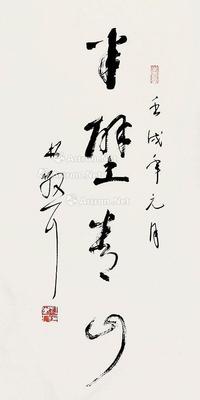 壬戌年元月
半壁青山
林散耳
Artron.Net